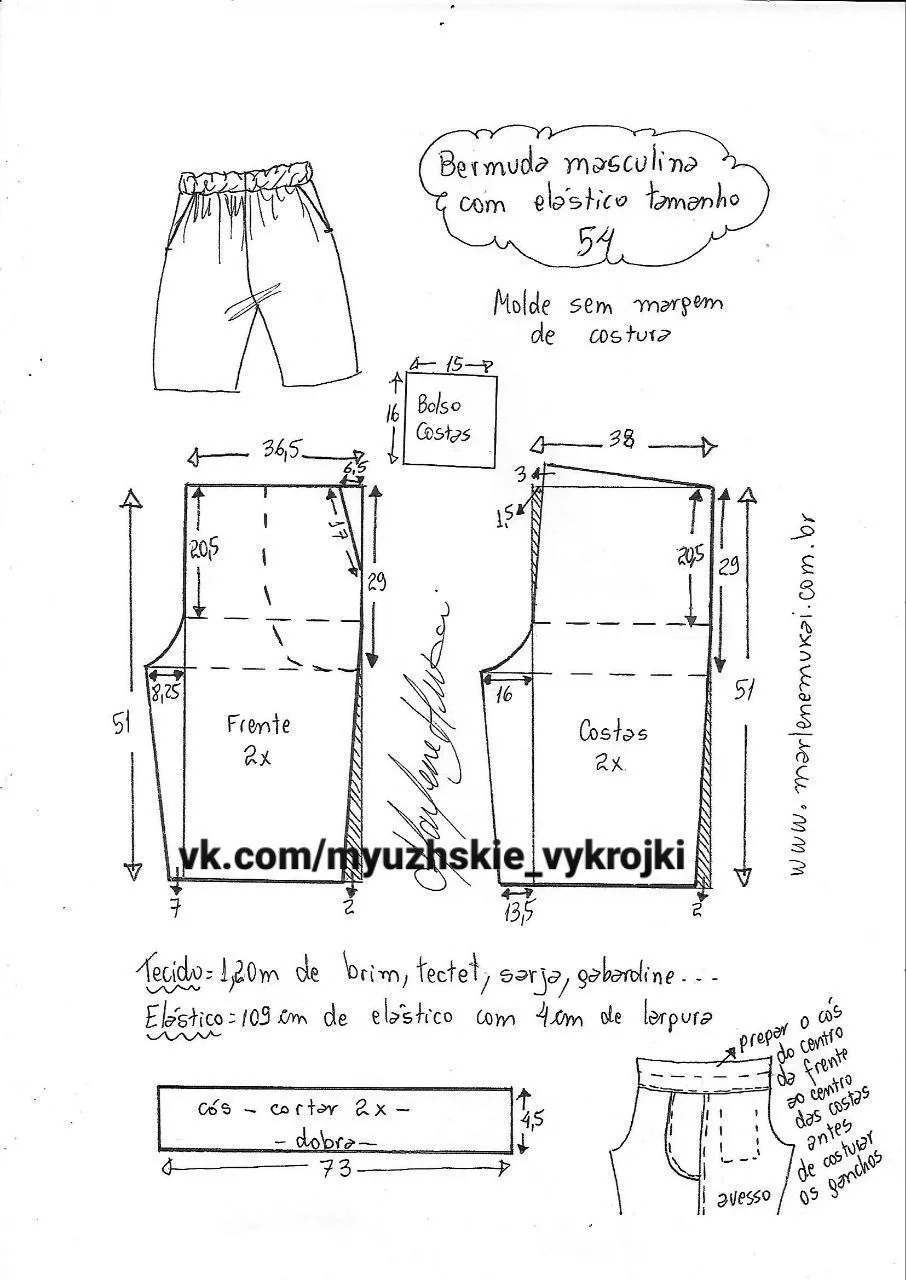 Bermuda masculina
com elástico tamanho
54
Molde sem margem
de costura
15
16
Bolso
Costas
36,5
6,5
20,5
17
29
8,25
51
Frente
2x
7
2
38
3
1,5
20,5
29
16
51
Costas
2x
13,5
2
www.marlenemukai.com.br
vk.com/myuzhskie_vykrojki
Tecido=1,20m de brim, tectel, sarja, gabardine...
Elástico=109 cm de elástico com 4cm de largura
cós - cortar 2x -
- dobra -
4,5
73
pregar o cós
do centro
da frente
ao centro
das costas
antes
de costurar
os ganchos
avesso